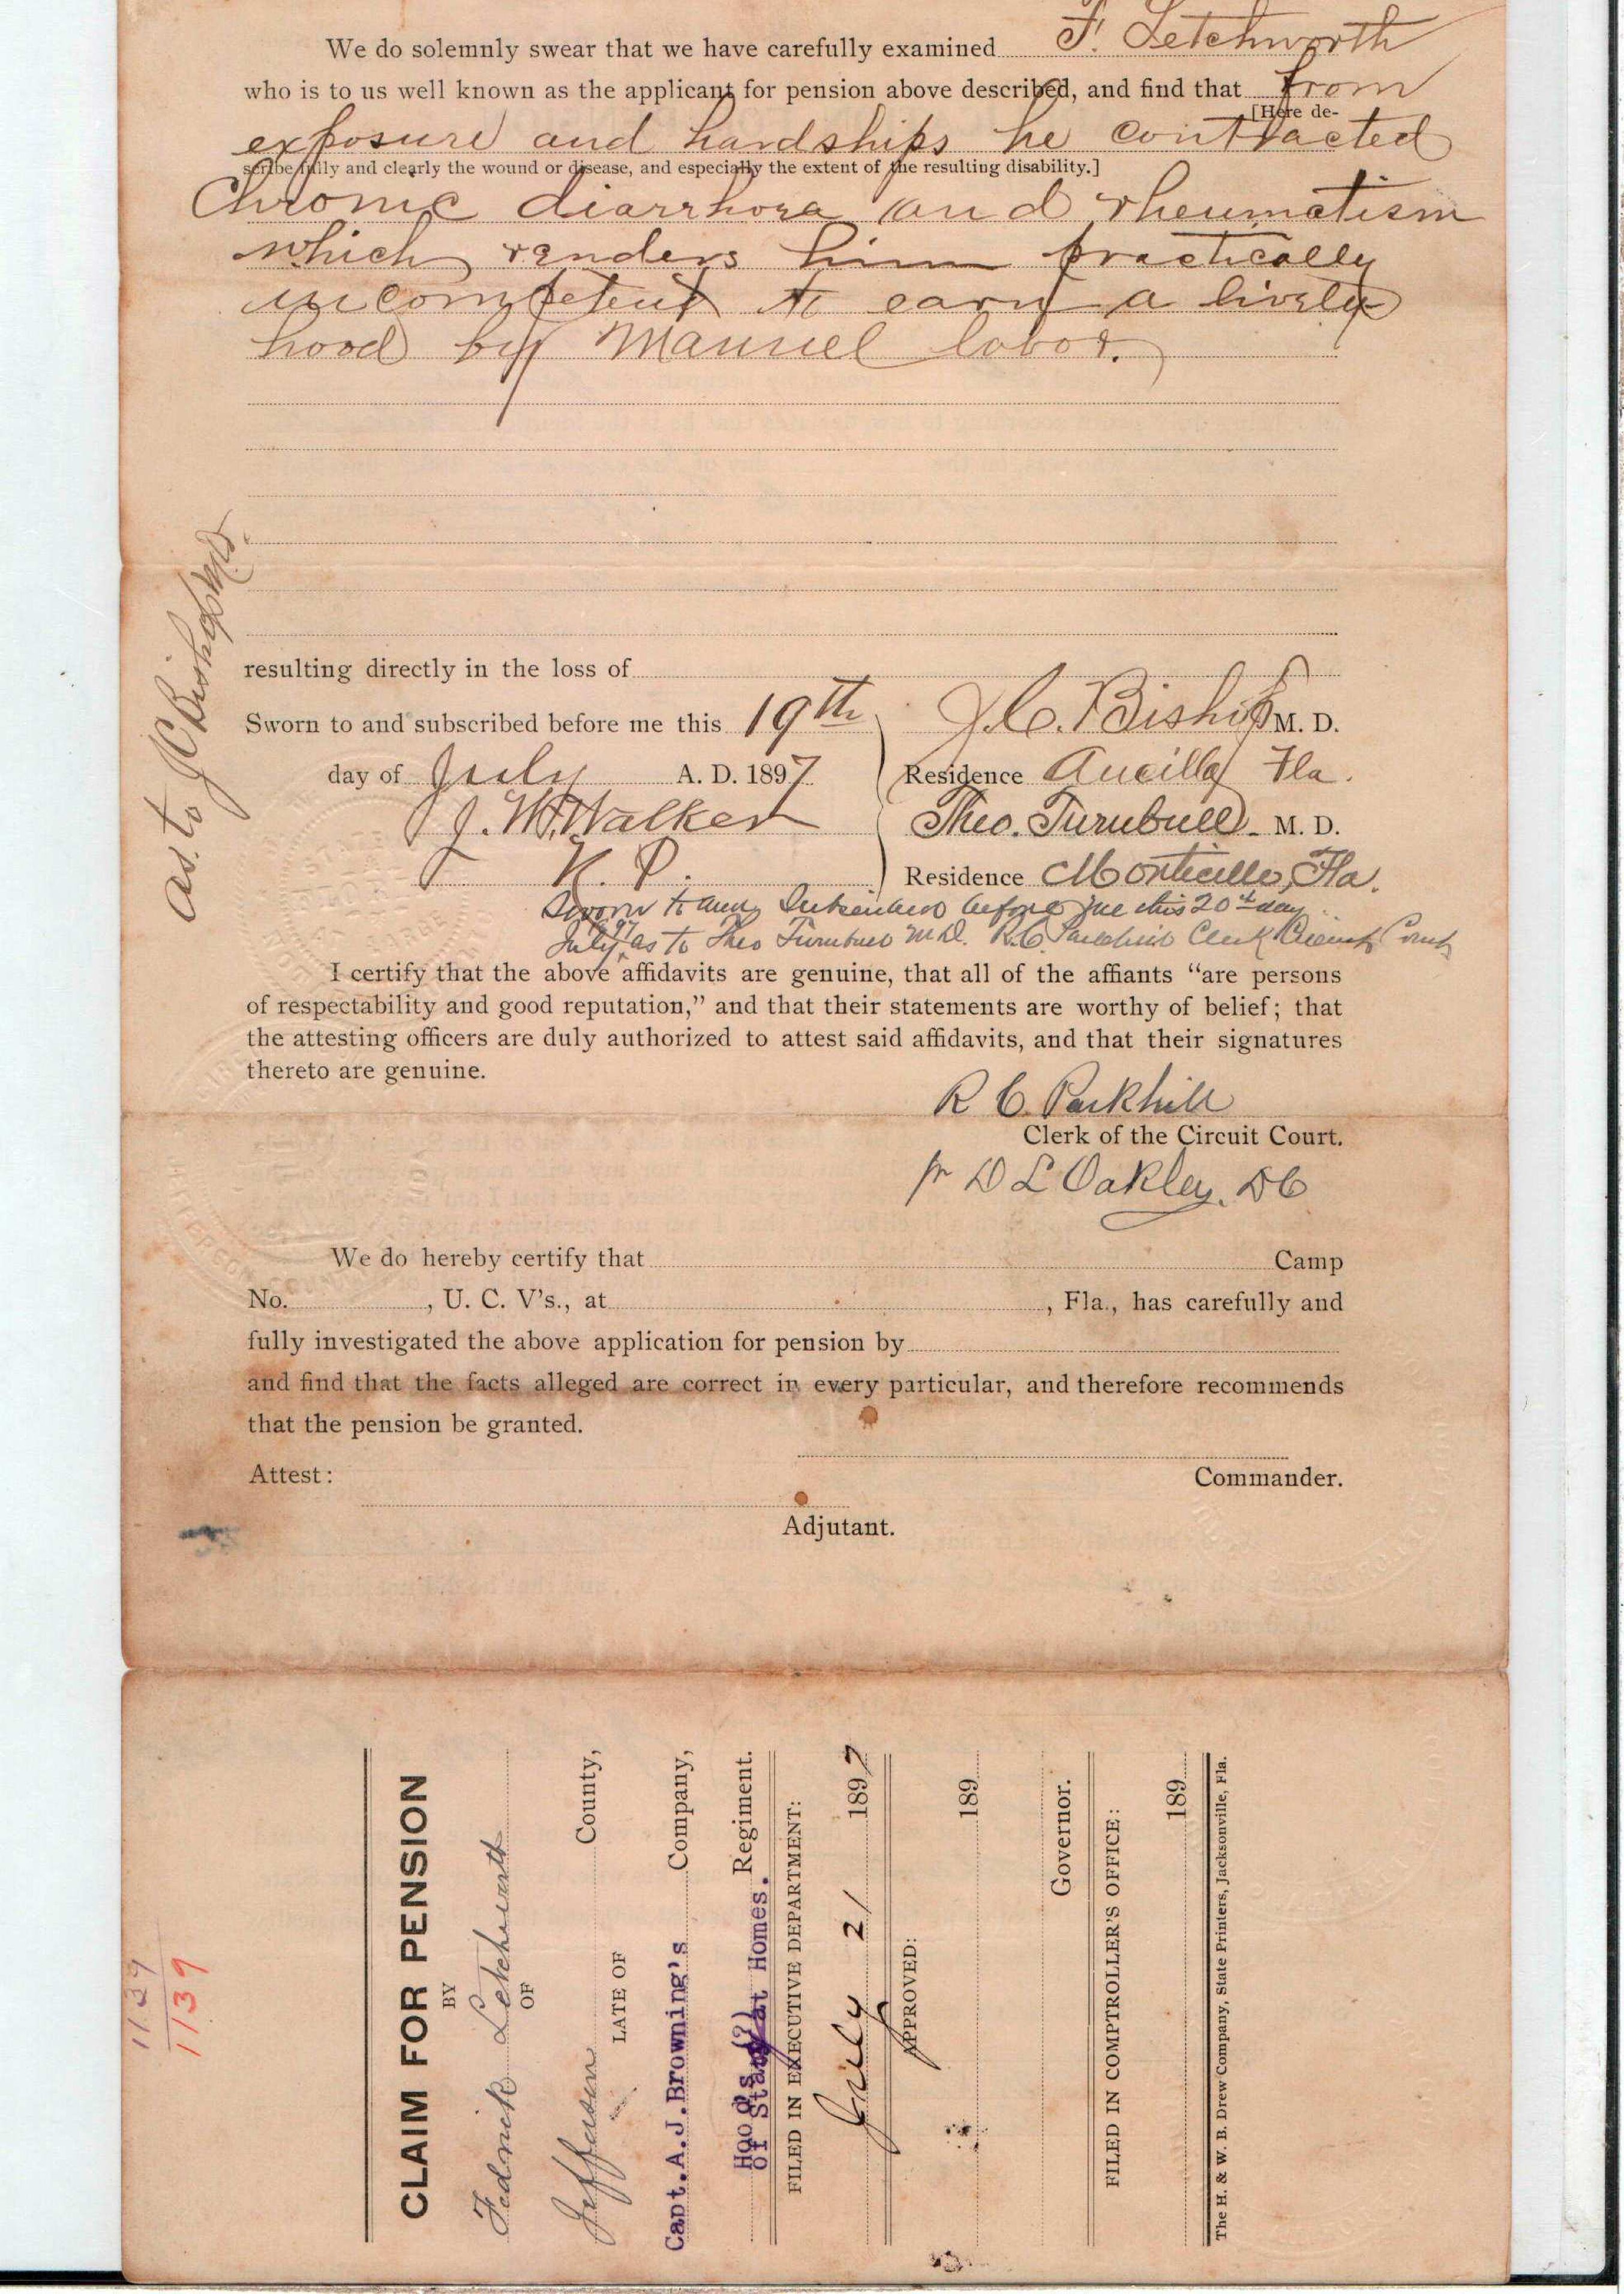 We do solemnly swear that we have carefully examined F. Letchworth
who is to us well known as the applicant for pension above described, and find that from
[Here de-
exposure and hardships he contracted
scribe fully and clearly the wound or disease, and especially the extent of the resulting disability.]
Chronic diarrhora and rheumatism
which renders him practically
incompetent to earn a lively
hood by Manuel labor.
resulting directly in the loss of
Sworn to and subscribed before me this 19th
J. C. Bishop M. D.
day of July A. D. 1897
Residence Aucilla Fla.
J. W. Walker
Theo. Turnbull M. D.
N. P.
Residence Monticello, Fla.
as. to J C Bishop M.D.
Sworn to and Subscribed before me this 20th day
July 97 as to Theo Turnbull M.D. R.C. Parkhill Clerk Circuit Court
I certify that the above affidavits are genuine, that all of the affiants “are persons
of respectability and good reputation,” and that their statements are worthy of belief; that
the attesting officers are duly authorized to attest said affidavits, and that their signatures
thereto are genuine.
R C. Parkhill
Clerk of the Circuit Court.
pr D L Oakley. DC
We do hereby certify that Camp
No. , U. C. V's., at , Fla., has carefully and
fully investigated the above application for pension by
and find that the facts alleged are correct in every particular, and therefore recommends
that the pension be granted.
Attest:
Commander.
Adjutant.
1139
1139
CLAIM FOR PENSION
BY
Fedrick Letchworth
OF
Jefferson County,
LATE OF
Capt. A.J. Browning's Company,
of Stay at Homes. Regiment.
FILED IN EXECUTIVE DEPARTMENT:
July 21 1897
APPROVED:
189
Governor.
FILED IN COMPTROLLER'S OFFICE:
189
The H. & W. B. Drew Company, State Printers, Jacksonville, Fla.